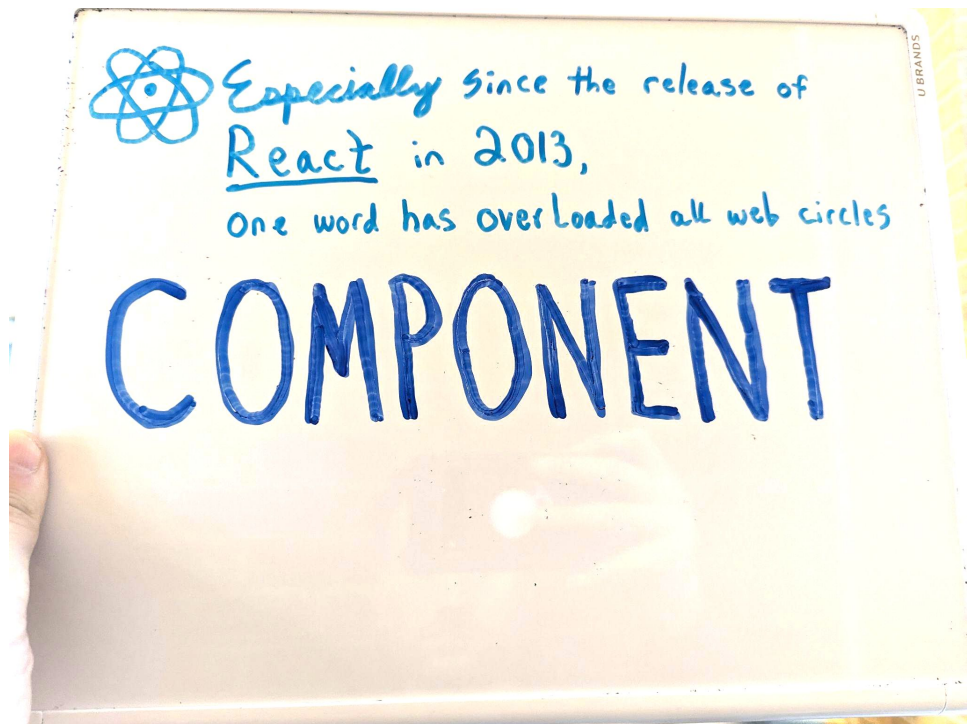 Especially since the release of
React in 2013,
one word has overLoaded all web circles
COMPONENT
U BRANDS